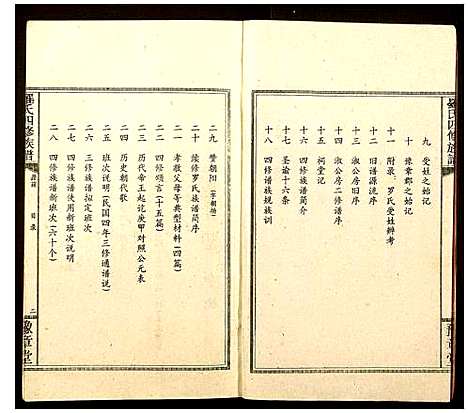 羅氏四修族譜
九　受姓之始记
十　豫章郡之始记
十一　附录：罗氏受姓辨考
十二　旧谱源流序
十三　淑公房旧序
十四　淑公房二修谱序
十五　祠堂记
十六　四修族谱简介
十七　圣谕十六条
十八　四修族谱规族训
豫章堂
二九　赞朝阳
三十　续修罗氏族谱简序
一　孝敬父母等典型材料（四篇）
二二　四修颂言（十五篇）
二三　历代帝王起讫庚甲对照公元表
二四　历史朝代歌
二五　班次说明（民国四年三修通谱说）
二六　三修族谱拟定班次
二七　四修族谱使用新班次说明
二八　四修族谱新班次（六十个）
羅氏四修族譜
目录
二
豫章堂